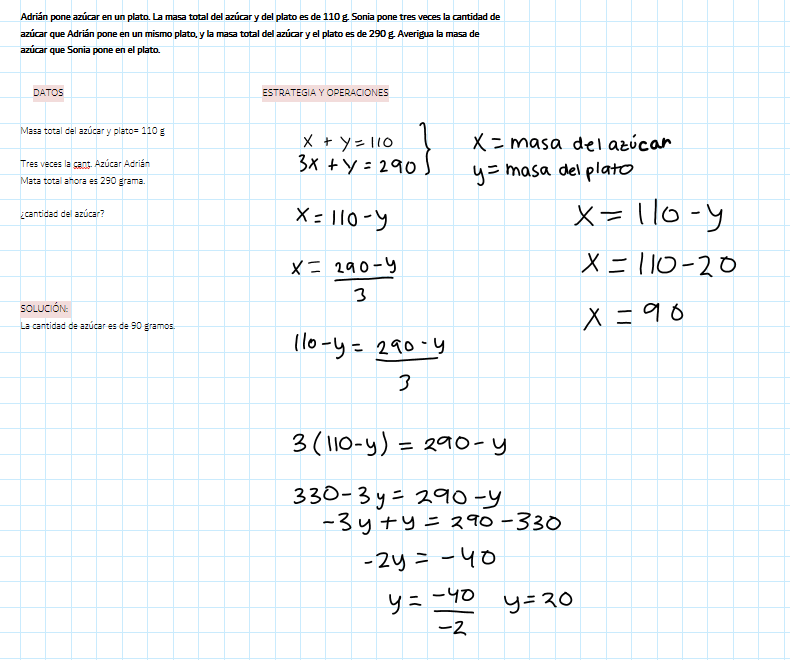 Adrián pone azúcar en un plato. La masa total del azúcar y del plato es de 110 g. Sonia pone tres veces la cantidad de
azúcar que Adrián pone en un mismo plato, y la masa total del azúcar y el plato es de 290 g. Averigua la masa de
azúcar que Sonia pone en el plato.
DATOS
Masa total del azúcar y plato= 110 g
Tres veces la cant. Azúcar Adrián
Mata total ahora es 290 grama.
¿cantidad del azúcar?
SOLUCIÓN:
La cantidad de azúcar es de 90 gramos.
ESTRATEGIA Y OPERACIONES
x + y = 110
3x + y = 290
x = 110 - y
x = 290 - y
3
110 - y = 290 - y
3
3 (110 - y) = 290 - y
330 - 3y = 290 - y
-3y + y = 290 - 330
-2y = -40
y = -40 y = 20
-2
x = masa del azúcar
y = masa del plato
x = 110 - y
x = 110 - 20
x = 90